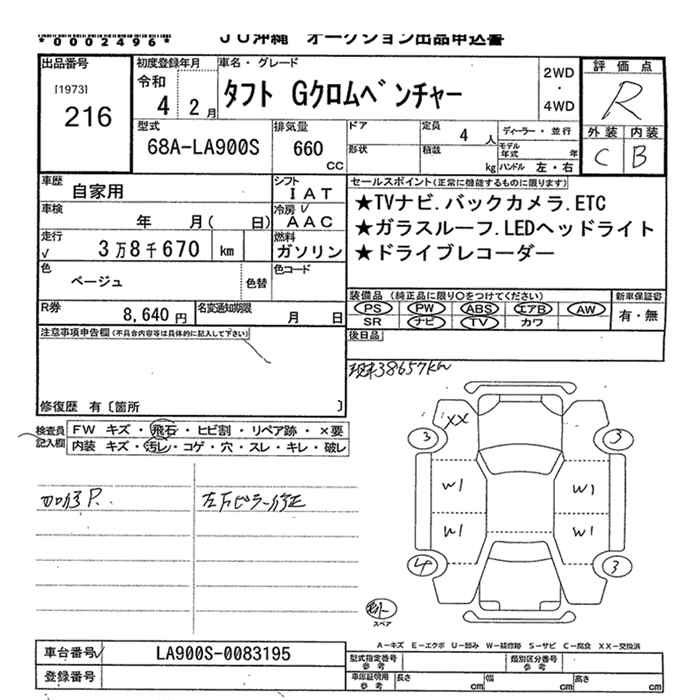 *0002496*
JU沖縄 オークション出品申込書
出品番号
[1973]
216
初度登録年月
令和
4 2月
車名・グレード
タフト Gクロムベンチャー
2WD
・
4WD
評価点
R
外装 内装
C B
型式
68A-LA900S
排気量
660
CC
ドア
形状
定員 4 人
積載 kg
ディーラー・並行
モデル年式 年
ハンドル 左・右
車歴
自家用
シフト
IAT
車検
年 月( 日)
冷房
AAC
走行
√ 3万8千670 km
燃料
ガソリン
色
ベージュ
色替
色コード
R券
8,640円
名変通知期限
月 日
セールスポイント(正常に機能するものに限ります)
★TVナビ.バックカメラ.ETC
★ガラスルーフ.LEDヘッドライト
★ドライブレコーダー
装備品(純正品に限り○をつけてください)
PS PW ABS エアB AW
SR ナビ TV カワ
新車保証書
有・無
後日品
注意事項申告欄(不具合内容等は具体的に記入して下さい)
修復歴 有〔箇所 〕
現車38657km
検査員
記入欄
FW キズ・飛石・ヒビ割・リペア跡・×要
内装 キズ・汚レ・コゲ・穴・スレ・キレ・破レ
加修P.
左右ピラー修正
XX
3 3
W1 W1
W1 W1
4 3
スペア
A-キズ E-エクボ U-凹み W-補修跡 S-サビ C-腐食 XX-交換済
車台番号√
LA900S-0083195
登録番号
型式指定番号
参考
類別区分番号
参考
車庫証明用
参考
長さ cm 幅 cm 高さ cm